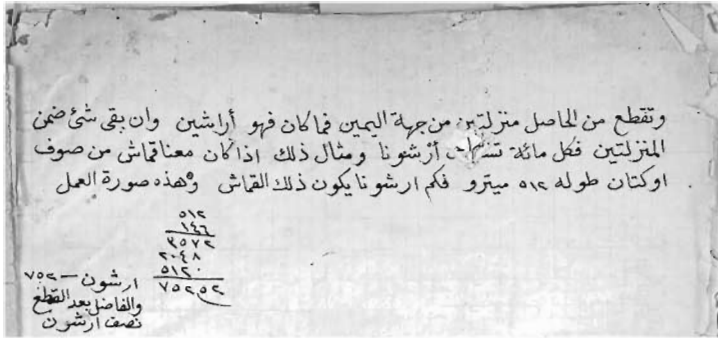 وتقطع من الحاصل منزلتين من جهة اليمين فما كان فهو أراشين وان بقى شئ ضمن
المنزلتين فكل مائة أرشونا ومثال ذلك اذا كان معنا قماش من صوف
اوكتان طوله ٥١٢ ميترو فكم ارشونا يكون ذلك القماش وهذه صورة العمل
٥١٢
١٤٦
٣٥٧٢
٢٠٤٨
٥١٢٠
٧٥٢٥٢
ارشون – ٧٥٢
والفاضل بعد القطع
نصف ارشون